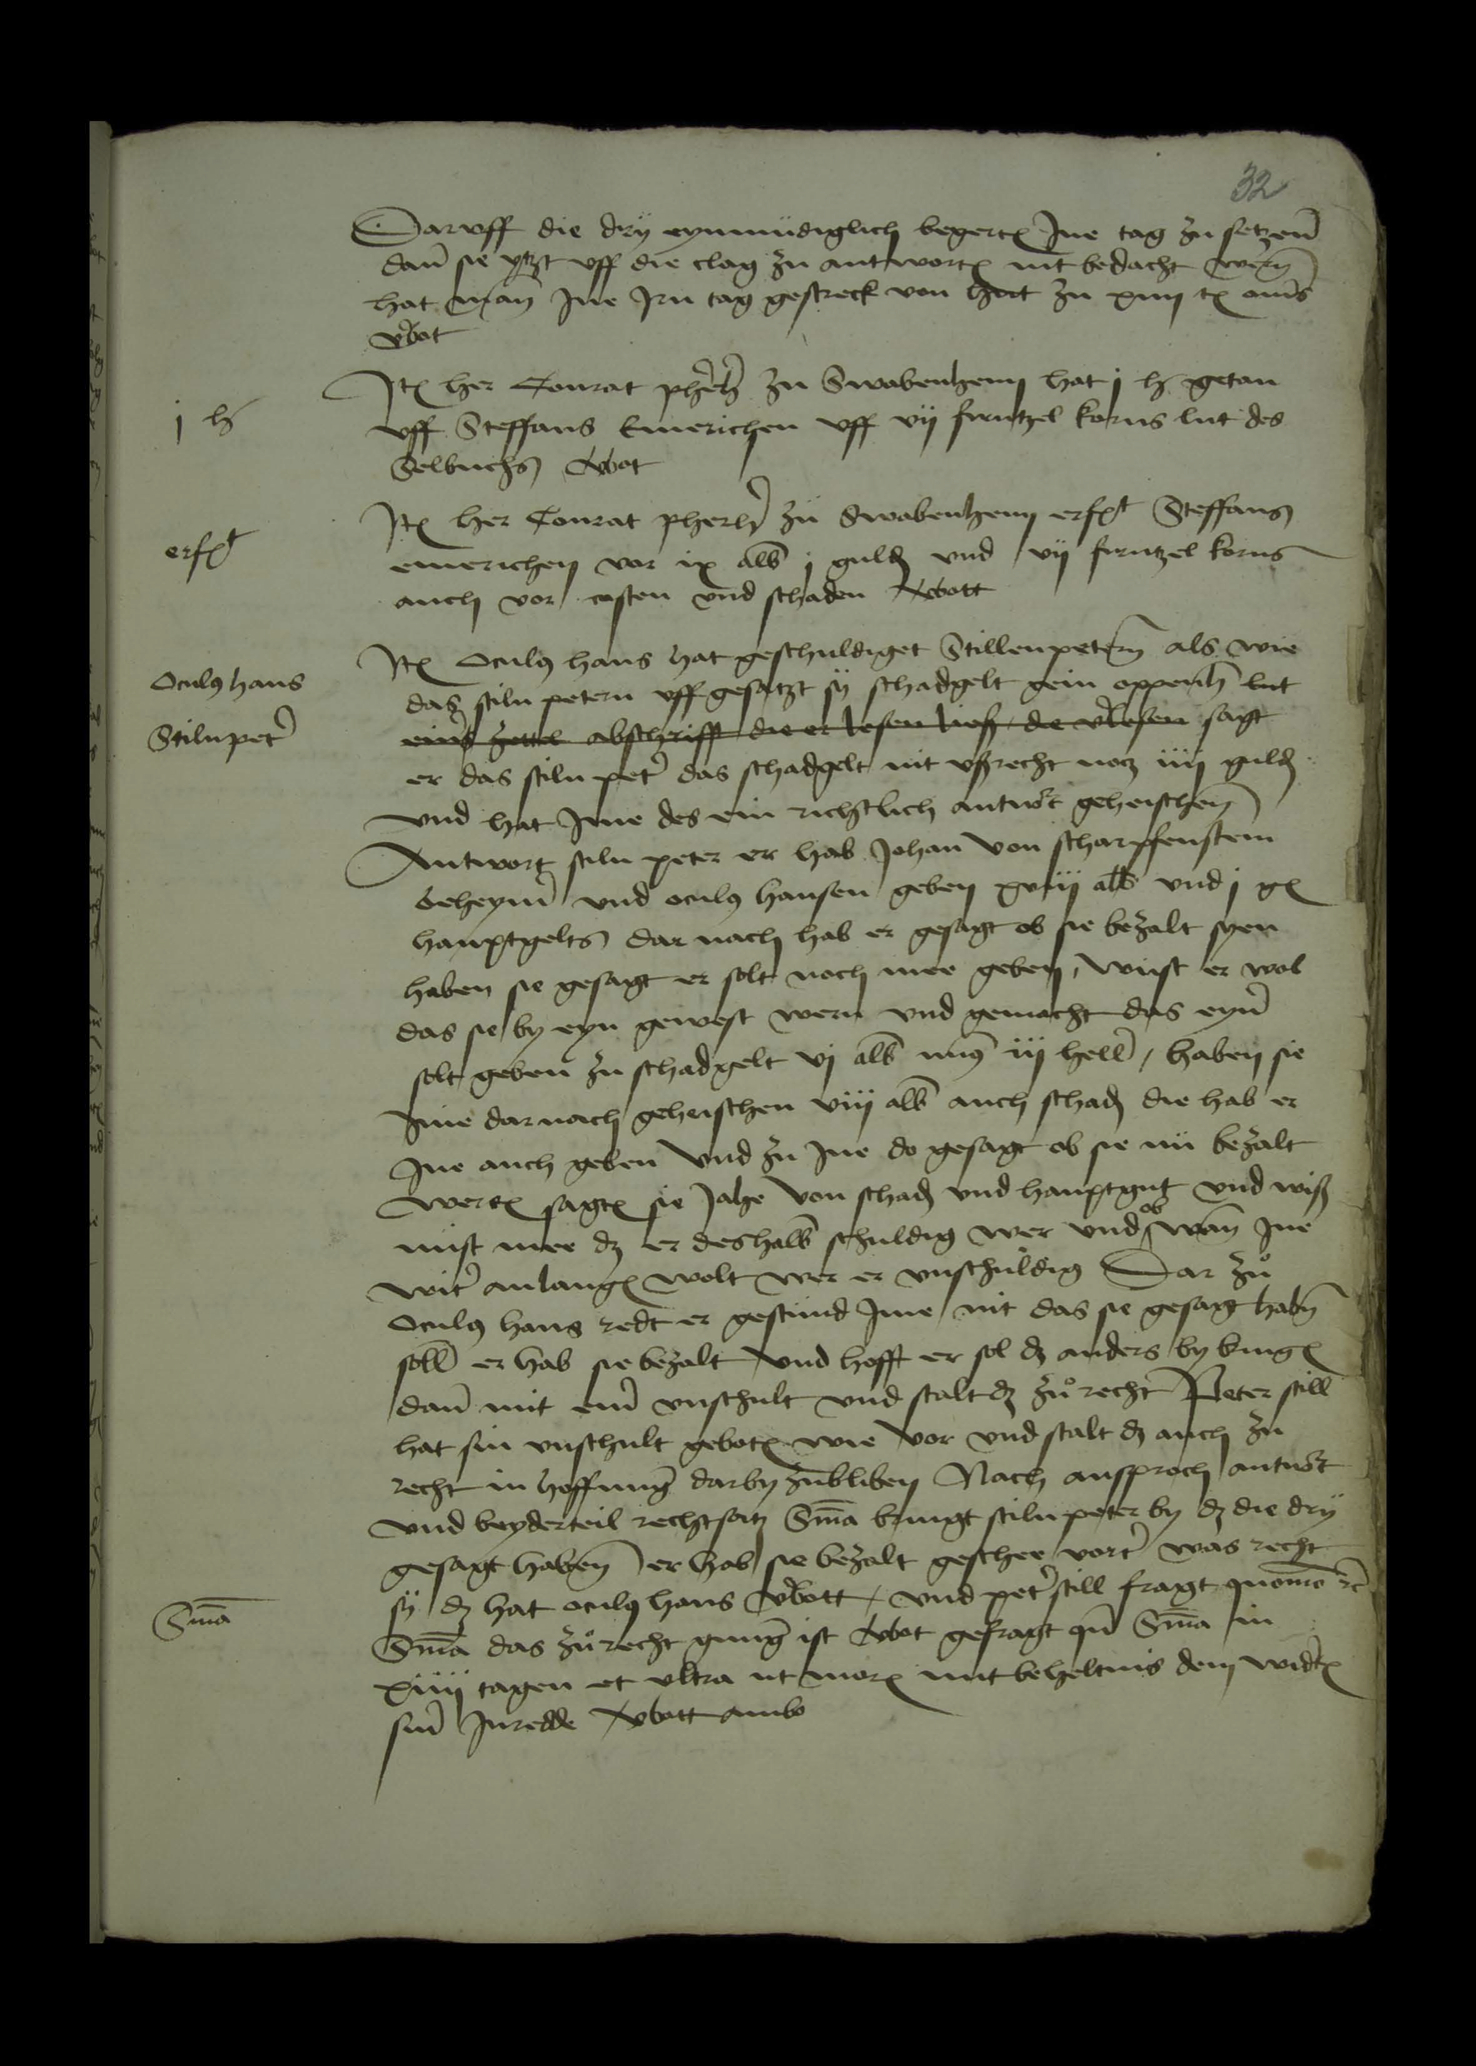 32
Daruff die dry eynmüdiglich begert Ine tag zu setzen
dan sie ytzt uff die clag zu antworten nit bedacht wern
hat man Ine Irn tag gestreckt von hut zu xiiij t omnes
v͛bot
It her Conrat pherh͛ zu Swabenheim hat j h getan
uff Steffans Emerichen uff vij firntzel korns lut des
Selbuchs v͛bot
j h
It her Conrat pherh͛ zü Swabenheim erf͛gt Steffans
emerichen vor ix alb j guld und vij firntzel korns
auch vor costen und schaden v͛bott
erf͛gt
It Oculꝰ hans hat geschuldiget Stillenpetern als wie
das stiln petern uff gesatzt sy schadgelt gein oppenh lut
eins zettel abschrifft die er lesen ließ die v͛lesen sagt
er das stiln pet͛ das schadgelt nit ußrecht noch iiij guld
und hat Ime des ein richtlich antw͛t geheischen
Oculꝰ hans
Stilnpet͛
Antwort stiln peter er hab Johan von scharpfenstein
seheym und oculꝰ hansen geben xviij alb und j g
hauptgelts dar nach hab er gesagt ob sie bezalt syen
haben sie gesagt er solt noch mee geben, wust er wol
das sie by eyn gewest wern und gemacht das eyn͛
solt geben zu schadgelt vj alb minꝰ iij hell͛, haben sie
Ime darnach geheischen viij alb auch schad die hab er
Ine auch geben und zu Ine do gesagt ob sie nü bezalt
wert sagt sie Jahe von schad und hauptgut und wiß
nust mee dz er deshalb schuldig wer und ob wan Ine
wit͛ anlang wolt wer er unschuldig Dar zů
Oculꝰ hans redt er gestund Ime nit das sie gesagt habn
soll͛ er hab sie bezalt und hofft er sol dz anders by bring
dan mit ein͛ unschult und stalt dz zů recht Peter still
hat sin unschult gebot wie vor und stalt dz auch zu
recht in hoffnung darby zubliben Nach ansproch antw͛t
und beyderteil rechtsatz Sma bringt stiln peter by dz die dry
gesagt haben er hab sie bezalt geschee vort͛ was recht
sy dz hat oculꝰ hans v͛bott, und pet͛ still fragt quomo ꝛc
Sma das zů recht gnung ist v͛bot gefragt qn Sma in
xiiij tagen et ultra ut mor mit beheltnis dem wid͛t
sin͛ Inredde v͛bott ambo
Sma